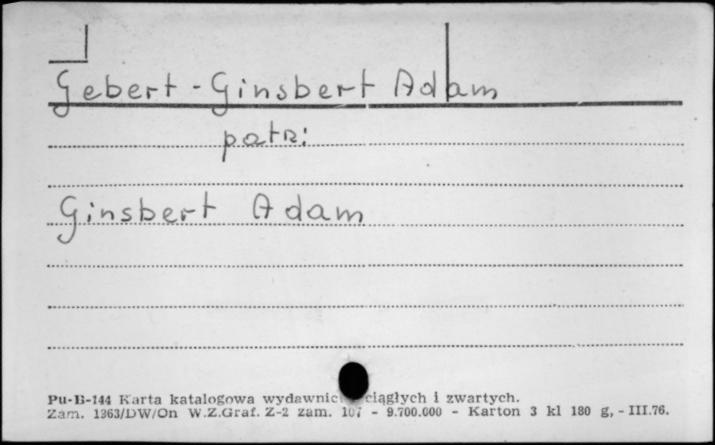 Gebert - Ginsbert Adam
patrz:
Ginsbert Adam
Pu-B-144 Karta katalogowa ciągłych i zwartych.
Zam. 1363/DW/On W.Z.Graf. Z-2 zam. 107 - 9.700.000 - Karton 3 kl 180 g, - III.76.